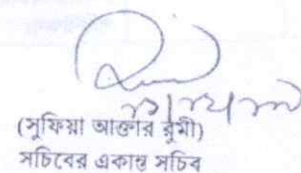 (সুফিয়া আক্তার রুমী)
সচিবের একান্ত সচিব